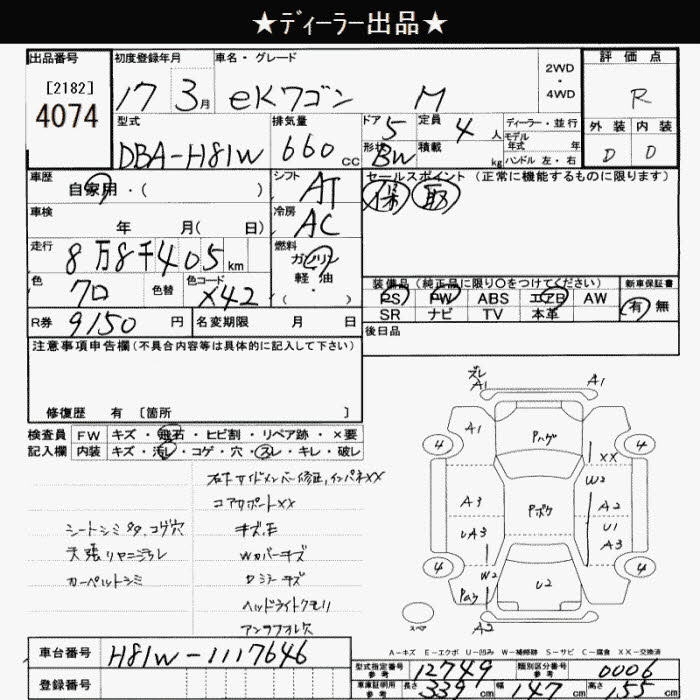 ★ディーラー出品★
出品番号
[2182]
4074
初度登録年月
17 3月
車名・グレード
eKワゴン M
2WD
・
4WD
評価点
R
外装 内装
D D
型式
DBA-H81W
排気量
660 cc
ドア 5
形状 BW
定員 4 人
積載 kg
ディーラー・並行
モデル
年式 年
ハンドル 左・右
車歴
自家用・( )
シフト
AT
セールスポイント(正常に機能するものに限ります)
保 取
車検
年 月( 日)
冷房
AC
走行
8万8千405km
燃料
ガソリン
軽油
・( )
色
クロ
色替
色コード
X42
装備品(純正品に限り○をつけてください)
PS PW ABS エアB AW
SR ナビ TV 本革
新車保証書
有 無
R券 9150 円
名変期限 月 日
後日品
注意事項申告欄(不具合内容等は具体的に記入して下さい)
修復歴 有 [箇所 ]
検査員
記入欄
FW キズ・飛石・ヒビ割・リペア跡・×要
内装 キズ・汚レ・コゲ・穴・スレ・キレ・破レ
右フサイドメンバー修正,インパネXX
コアサポートXX
シートシミタタ,コゲ穴
天張リヤニジラレ
カーペットシミ
Wカバーキズ
Dミラーキズ
ヘッドライトクモリ
アンテラフォル欠
ズレ
A1 A1
A1 Pハゲ
4 4
XX
W2
A3 Pボケ A2
UA3 U1
A3
4 4
W2
Pタッ U2
スペア A2
A-キズ E-エクボ U-凹み W-補修跡 S-サビ C-腐食 XX-交換済
車台番号 H81W-1117646
登録番号
型式指定番号
参考
12749
類別区分番号
参考
0006
車庫証明用
参考
長さ 339 cm 幅 147 cm 高さ 155 cm